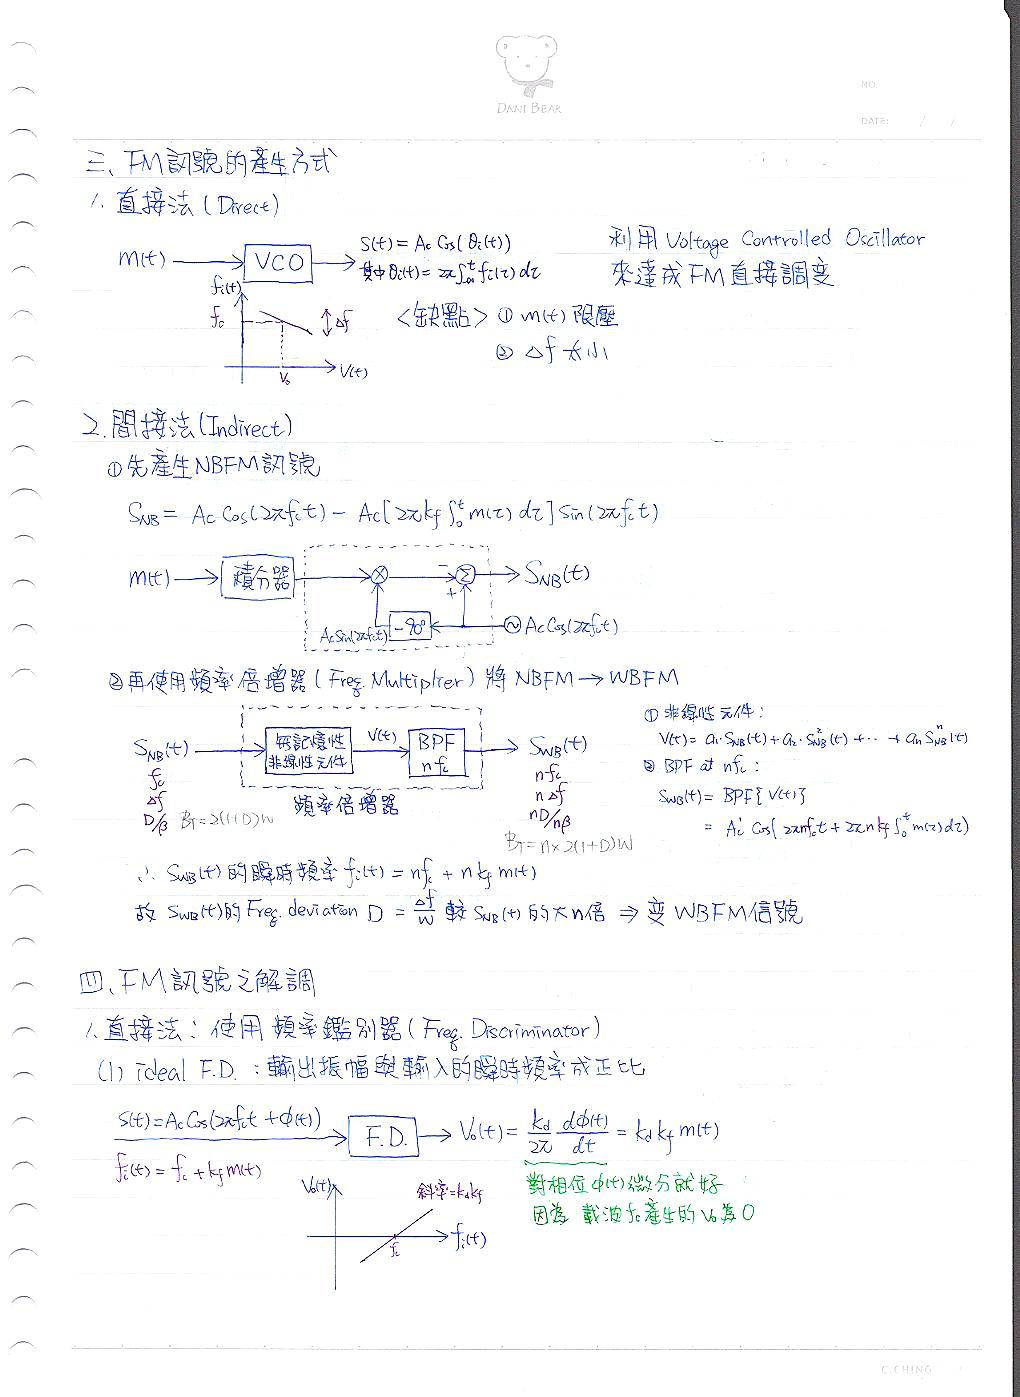 DANI BEAR
NO.
DATE: / /
三、FM訊號的產生方式
1. 直接法 (Direct)
m(t) VCO S(t) = Ac Cos(θi(t))
其中θi(t) = 2π∫₋∞ᵗ fi(τ) dτ
利用 Voltage Controlled Oscillator
來達成FM直接調变
fi(t)
fc Δf
V₀ V(t)
<缺點> ① m(t) 限壓
② Δf 太小
2. 間接法 (Indirect)
①先產生NBFM訊號
S_NB = Ac Cos(2πfct) - Ac[2πkf∫₀ᵗ m(τ) dτ] Sin(2πfct)
m(t) 積分器 × - Σ + S_NB(t)
AcSin(2πfct) -90° ~ AcCos(2πfct)
②再使用頻率倍增器 (Freq. Multiplier) 將 NBFM → WBFM
S_NB(t) 無記憶性 非線性元件 V(t) BPF nfc S_WB(t)
fc
Δf
D/β B_T = 2(1+D)W
頻率倍增器
nfc
nΔf
nD/nβ
B_T = n×2(1+D)W
① 非線性元件:
V(t) = a₁·S_NB(t) + a₂·S²_NB(t) + ··· + aₙSⁿ_NB(t)
② BPF at nfc:
S_WB(t) = BPF{V(t)}
= Ac' Cos(2πnfct + 2πnkf∫₀ᵗ m(τ) dτ)
∴ S_WB(t) 的瞬時頻率 fi(t) = nfc + nkf m(t)
故 S_WB(t)的 Freq. deviation D = Δf/W 較 S_NB(t) 的大n倍 ⇒ 变 WBFM信號
四、FM訊號之解調
1. 直接法: 使用 頻率鑑別器 (Freq. Discriminator)
(1) ideal F.D. : 輸出振幅與輸入的瞬時頻率成正比
S(t)=AcCos(2πfct+ϕ(t)) F.D. V₀(t) = kd/2π dϕ(t)/dt = kd kf m(t)
fi(t) = fc + kf m(t)
對相位ϕ(t)微分就好
因為 載波fc產生的V₀為0
V₀(t) 斜率=kdkf
fc fi(t)
C.CHING